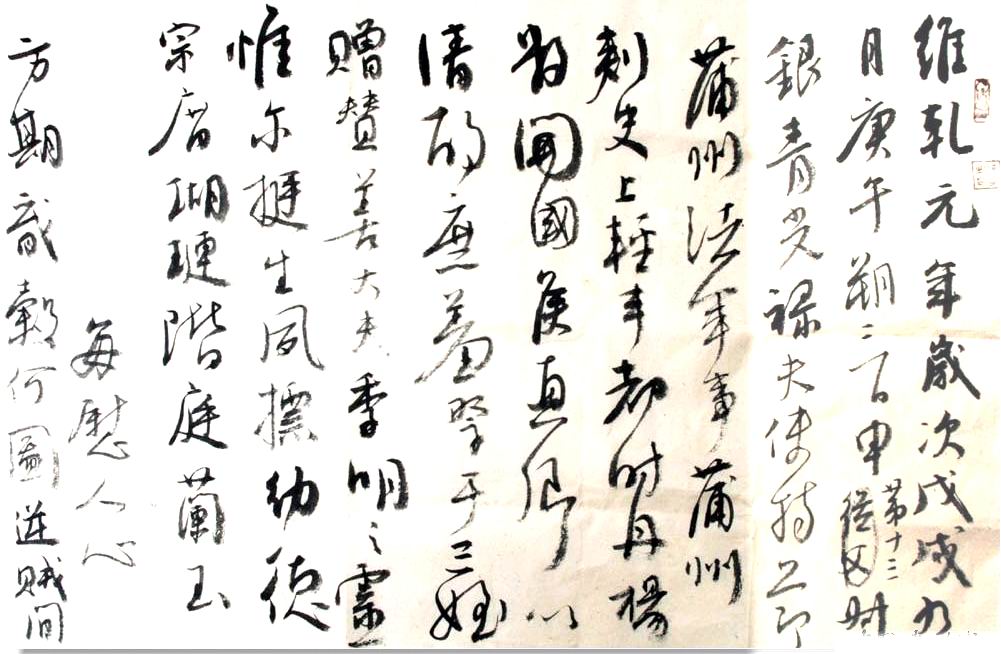 維乾元年歲次戊戌九
月庚午朔三日申第十三從父
銀青光祿夫使持節
蒲州諸軍事蒲州
刺史上輕車都尉丹楊
縣開國侯真卿以
清酌庶羞祭于亡姪
贈贊善大夫季明之靈
惟尔挺生夙標幼德
宗庿瑚璉階庭蘭玉
每慰人心
方期戩穀何圖逆賊間